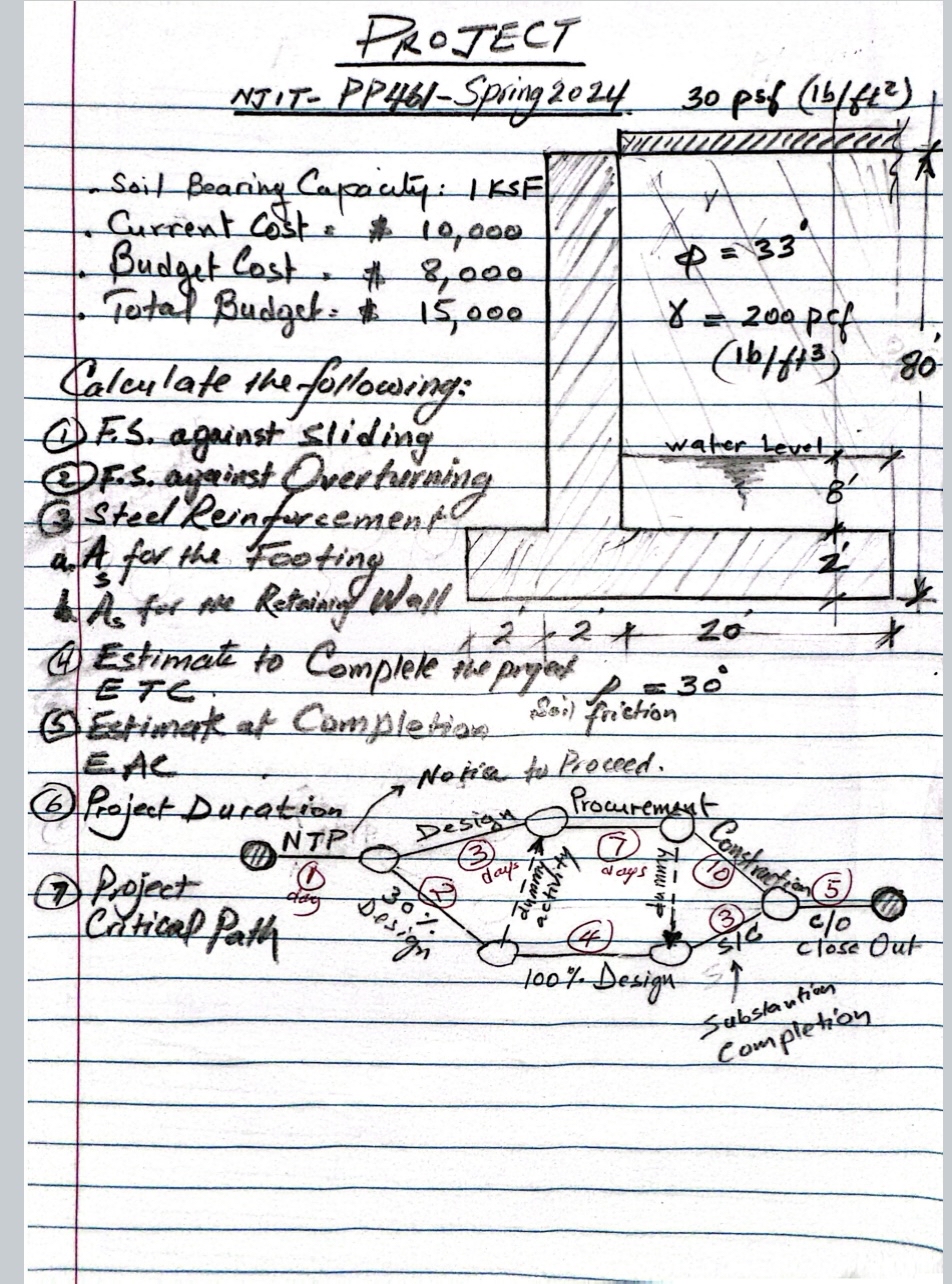 PROJECT
NJIT- PP461-Spring 2024
30 psf (lb/ft²)
. Soil Bearing Capacity: 1 KSF
. Current Cost = $ 10,000
. Budget Cost = $ 8,000
. Total Budget = $ 15,000
ϕ = 33°
γ = 200 pcf
(lb/ft³)
80'
Calculate the following:
① F.S. against Sliding
② F.S. against Overturning
③ Steel Reinforcement
a. As for the Footing
b. As for the Retaining Wall
water Level
8'
2'
2' 2' 20'
④ Estimate to Complete the project
ETC.
ρ = 30°
Soil friction
⑤ Estimate at Completion
EAC
Notice to Proceed.
⑥ Project Duration
NTP
① day
Design
③ days
Procurement
⑦ days
Construction
⑩
⑤
C/O
Close Out
⑦ Project
Critical Path
30%
Design
dummy
activity
dummy
④
100% Design
③
S/C
Substantion
Completion